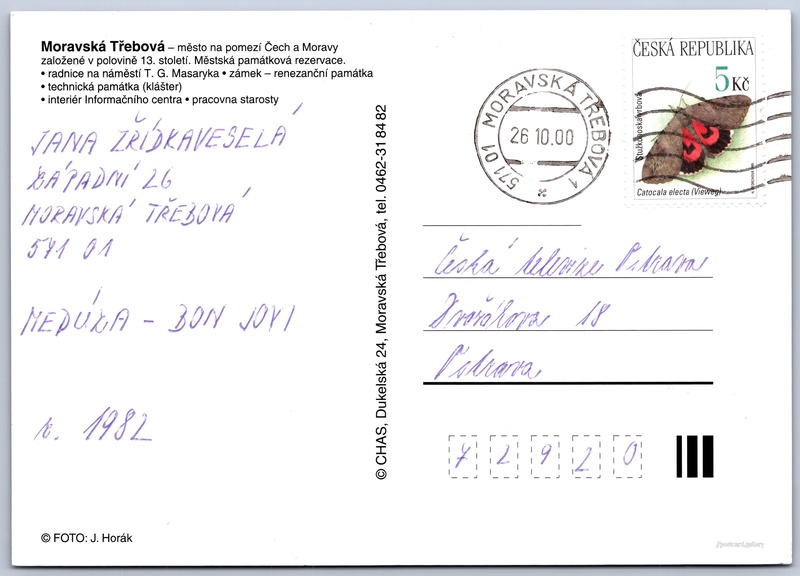 Moravská Třebová – město na pomezí Čech a Moravy
založené v polovině 13. století. Městská památková rezervace.
• radnice na náměstí T. G. Masaryka • zámek – renezanční památka
• technická památka (klášter)
• interiér Informačního centra • pracovna starosty
JANA ZŘÍDKAVESELÁ
ZÁPADNÍ 26
MORAVSKÁ TŘEBOVÁ
571 01
MEDÚZA – BON JOVI
r. 1982
© FOTO: J. Horák
© CHAS, Dukelská 24, Moravská Třebová, tel. 0462-31 84 82
MORAVSKÁ TŘEBOVÁ 1
571 01
26 10.00
ČESKÁ REPUBLIKA
5 Kč
Stužkonoska vrbová
Catocala electa (Vieweg)
Česká televize Ostrava
Dvořákova 18
Ostrava
7 2 9 2 0